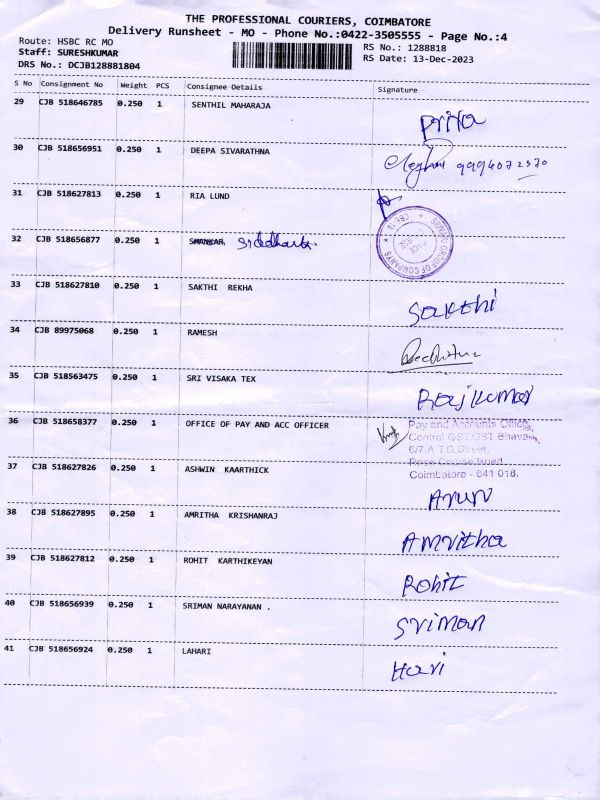 THE PROFESSIONAL COURIERS, COIMBATORE
Delivery Runsheet - MO - Phone No.:0422-3505555 - Page No.:4
Route: HSBC RC MO
RS No.: 1288818
Staff: SURESHKUMAR
RS Date: 13-Dec-2023
DRS No.: DCJB128881804
S No Consignment No Weight PCS Consignee Details Signature
29 CJB 518646785 0.250 1 SENTHIL MAHARAJA Priya
30 CJB 518656951 0.250 1 DEEPA SIVARATHNA 9994072570
31 CJB 518627813 0.250 1 RIA LUND
32 CJB 518656877 0.250 1 SHANKAR Siddharth
GROUP OF COMPANYS
CBE-18
33 CJB 518627810 0.250 1 SAKTHI REKHA Sakthi
34 CJB 89975068 0.250 1 RAMESH
35 CJB 518563475 0.250 1 SRI VISAKA TEX Rajkumar
36 CJB 518658377 0.250 1 OFFICE OF PAY AND ACC OFFICER Pay and Accounts Office,
Central GST, GST Bhavan,
6/7 A.T.D. Street,
Race Course Road,
Coimbatore - 641 018.
37 CJB 518627826 0.250 1 ASHWIN KAARTHICK Arun
38 CJB 518627895 0.250 1 AMRITHA KRISHNARAJ Amritha
39 CJB 518627812 0.250 1 ROHIT KARTHIKEYAN Rohit
40 CJB 518656939 0.250 1 SRIMAN NARAYANAN . Sriman
41 CJB 518656924 0.250 1 LAHARI Hari